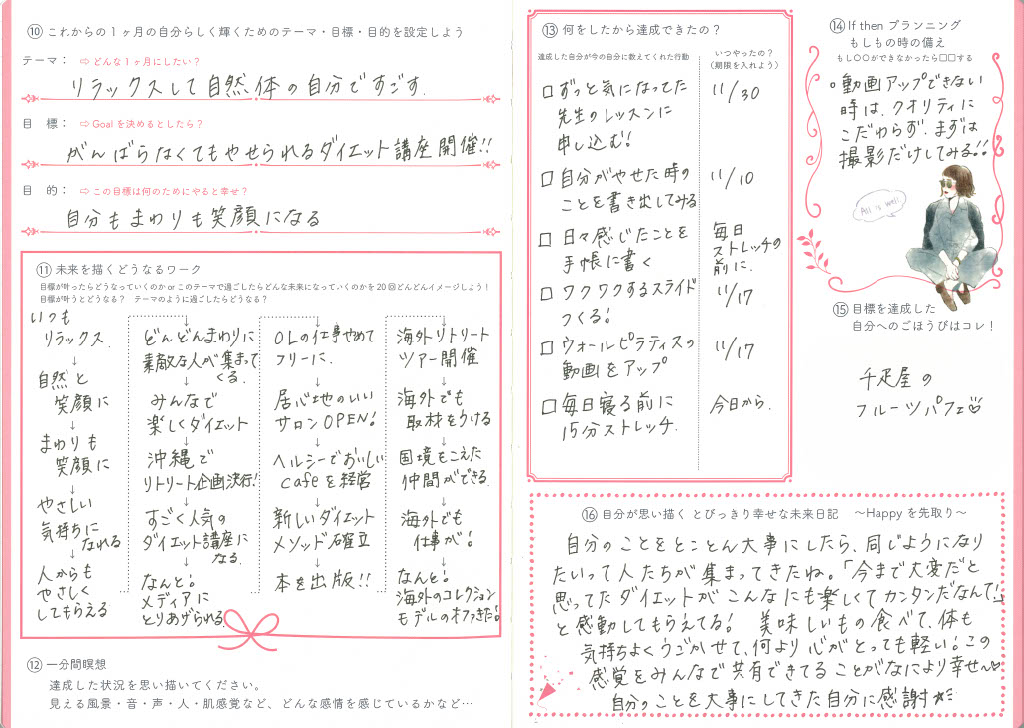 ⑩ これからの1ヶ月の自分らしく輝くためのテーマ・目標・目的を設定しよう
テーマ： ⇨ どんな1ヶ月にしたい？
リラックスして自然体の自分ですごす.
目　標： ⇨ Goalを決めるとしたら？
がんばらなくてもやせられるダイエット講座開催!!
目　的： ⇨ この目標は何のためにやると幸せ？
自分もまわりも笑顔になる
⑪ 未来を描くどうなるワーク
目標が叶ったらどうなっていくのか or このテーマで過ごしたらどんな未来になっていくのかを20回どんどんイメージしょう！
目標が叶うとどうなる？　テーマのように過ごしたらどうなる？
いつも
リラックス.
↓
自然と
笑顔に
↓
まわりも
笑顔に
↓
やさしい
気持ちに
なれる
↓
人からも
やさしく
してもらえる
どんどんまわりに
素敵な人が集まって
くる.
↓
みんなで
楽しくダイエット
↓
沖縄で
リトリート企画決行!
↓
すごく人気の
ダイエット講座に
なる.
↓
なんと!
メディアに
とりあげられる
OLの仕事やめて
フリーに.
↓
居心地のいい
サロンOPEN!
↓
ヘルシーでおいしい
cafeを経営
↓
新しいダイエット
メソッド確立
↓
本を出版!!
海外リトリート
ツアー開催
↓
海外でも
取材をうける
↓
国境をこえた
仲間ができる.
↓
海外でも
仕事が!
↓
なんと!
海外のコレクション
モデルのオファきた!
⑫ 一分間瞑想
達成した状況を思い描いてください。
見える風景・音・声・人・肌感覚など、どんな感情を感じているかなど…
⑬ 何をしたから達成できたの？
達成した自分が今の自分に教えてくれた行動
いつやったの？
（期限を入れよう）
□ ずっと気になってた 11/30
先生のレッスンに
申し込む!
□ 自分がやせた時の 11/10
ことを書き出してみる
□ 日々感じたことを 毎日
手帳に書く ストレッチの
前に.
□ ワクワクするスライド 11/17
つくる!
□ ウォールピラティスの 11/17
動画をアップ
□ 毎日寝る前に 今日から.
15分ストレッチ.
⑭ If then プランニング
もしもの時の備え
もし〇〇ができなかったら□□する
○動画アップできない
時は、クオリティに
こだわらず、まずは
撮影だけしてみる!!
All is well
⑮ 目標を達成した
自分へのごほうびはコレ！
千疋屋の
フルーツパフェ♡
⑯ 自分が思い描く とびっきり幸せな未来日記　～Happyを先取り～
自分のことをとことん大事にしたら、同じようになり
たいって人たちが集まってきたね。「今まで大変だと
思ってたダイエットがこんなにも楽しくてカンタンだなんて!」
と感動してもらえてる! 美味しいもの食べて、体も
気持ちよくうごかせて、何より心がとっても軽い!この
感覚をみんなで共有できてることがなにより幸せ~♡
自分のことを大事にしてきた自分に感謝